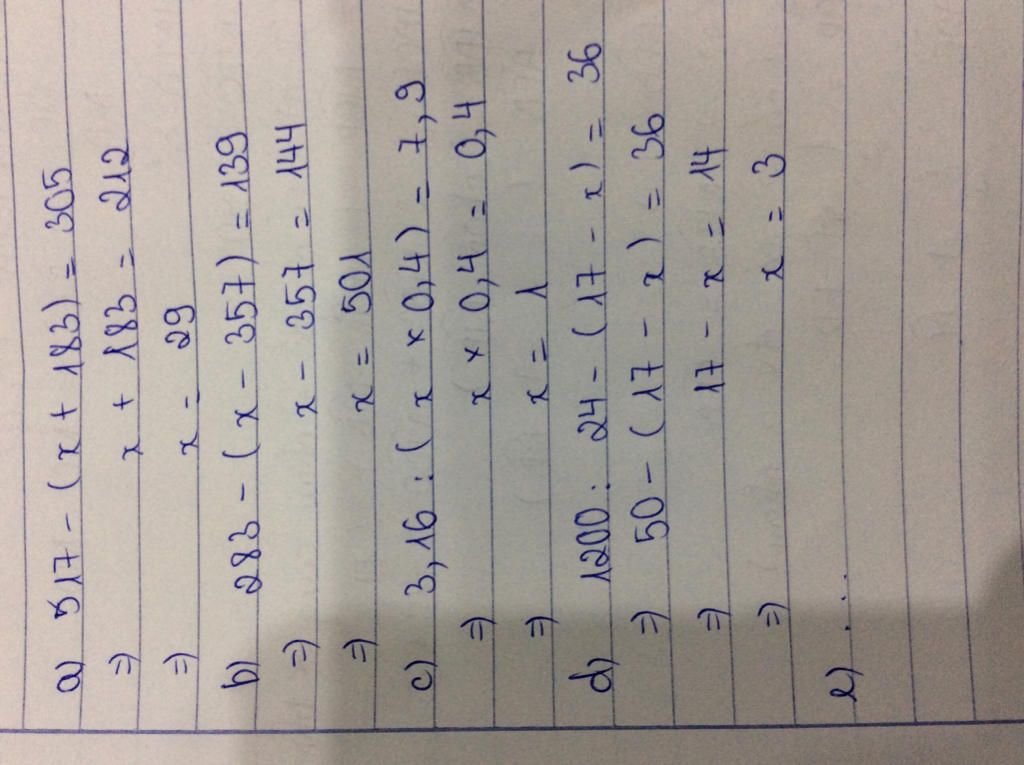 a) 517 - (x + 183) = 305
=) x + 183 = 212
=) x = 29
b) 283 - (x - 357) = 139
=) x - 357 = 144
=) x = 501
c) 3,16 : (x × 0,4) = 7,9
=) x × 0,4 = 0,4
=) x = 1
d) 1200 : 24 - (17 - x) = 36
=) 50 - (17 - x) = 36
=) 17 - x = 14
=) x = 3
e) ...